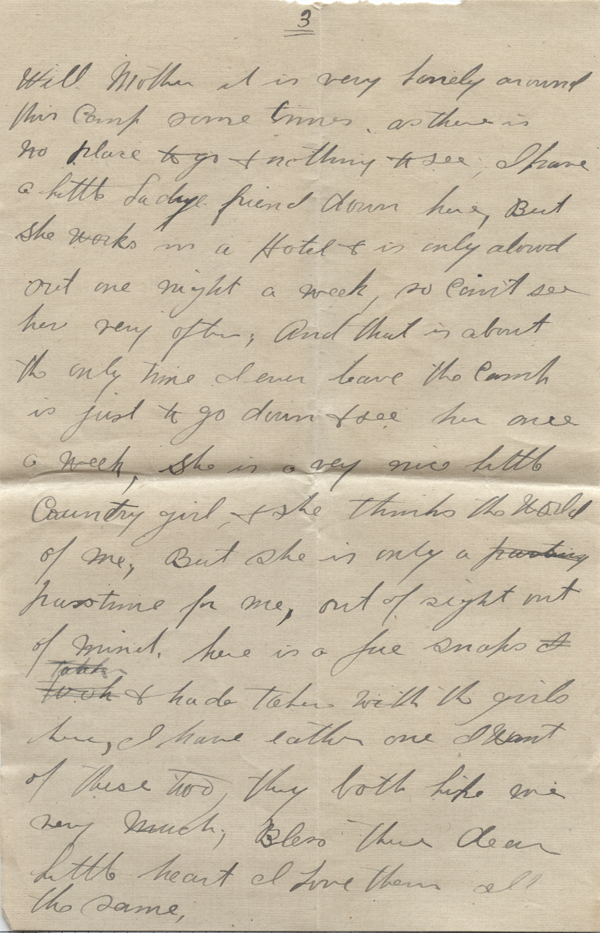 3
Well Mother it is very lonely around
this Camp some times. as there is
no place to go & nothing to see, I have
a little Ladye friend down here, But
she works in a Hotel & is only alowd
out one night a week, so Can't see
her very often, And that is about
the only time I ever leave the Camp
is just to go down & see her once
a week, she is a very nice little
Country girl, & she thinks the World
of me, But she is only a
passtime for me, out of sight out
of mind. here is a fue snaps I
took & had taken with the girls
here, I have eather one I want
of these two, they both like me
very Much, Bless there dear
little heart I Love them all
the same,